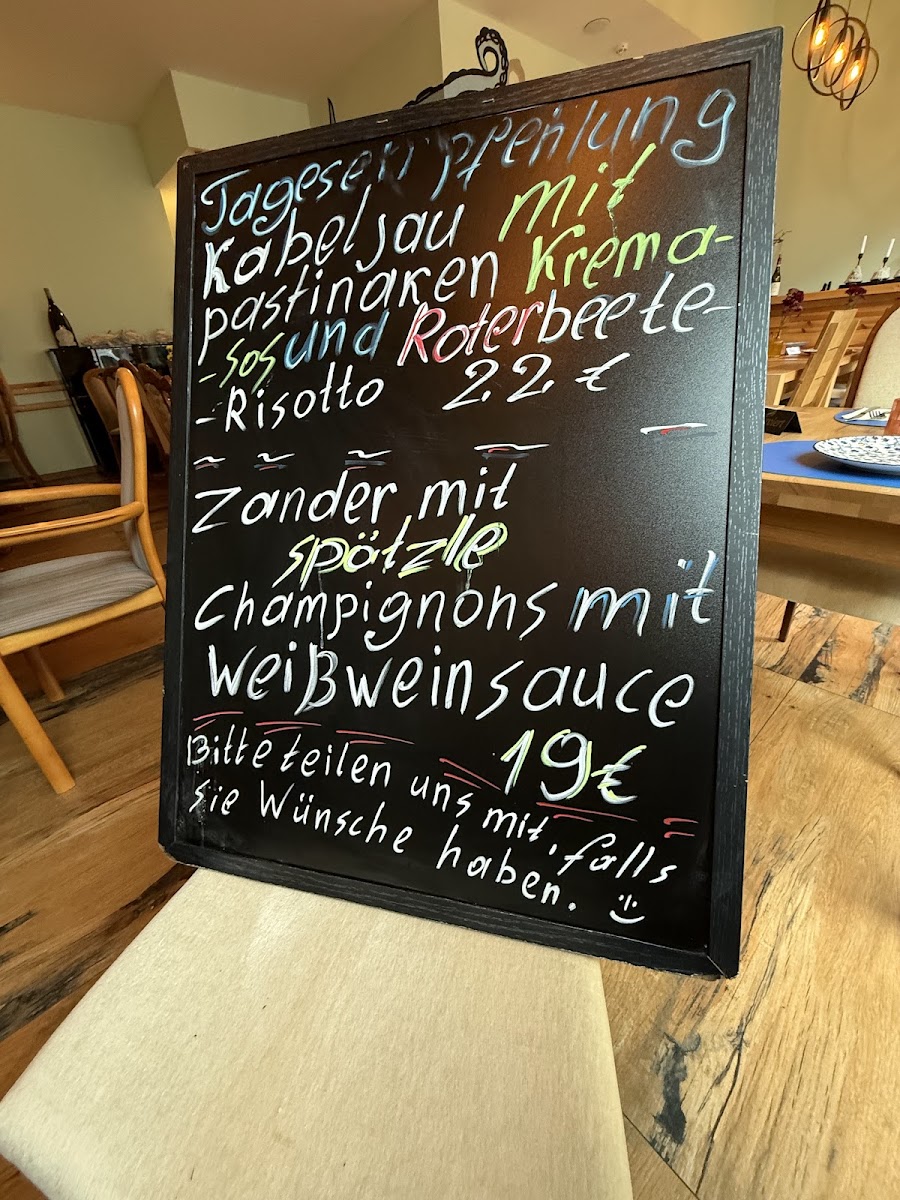 Tagesempfehlung
Kabeljau mit
pastinaken Krema-
-sos und Roterbeete-
-Risotto 22 €
Zander mit
spätzle
Champignons mit
Weißweinsauce
19€
Bitte teilen uns mit, falls
sie Wünsche haben.